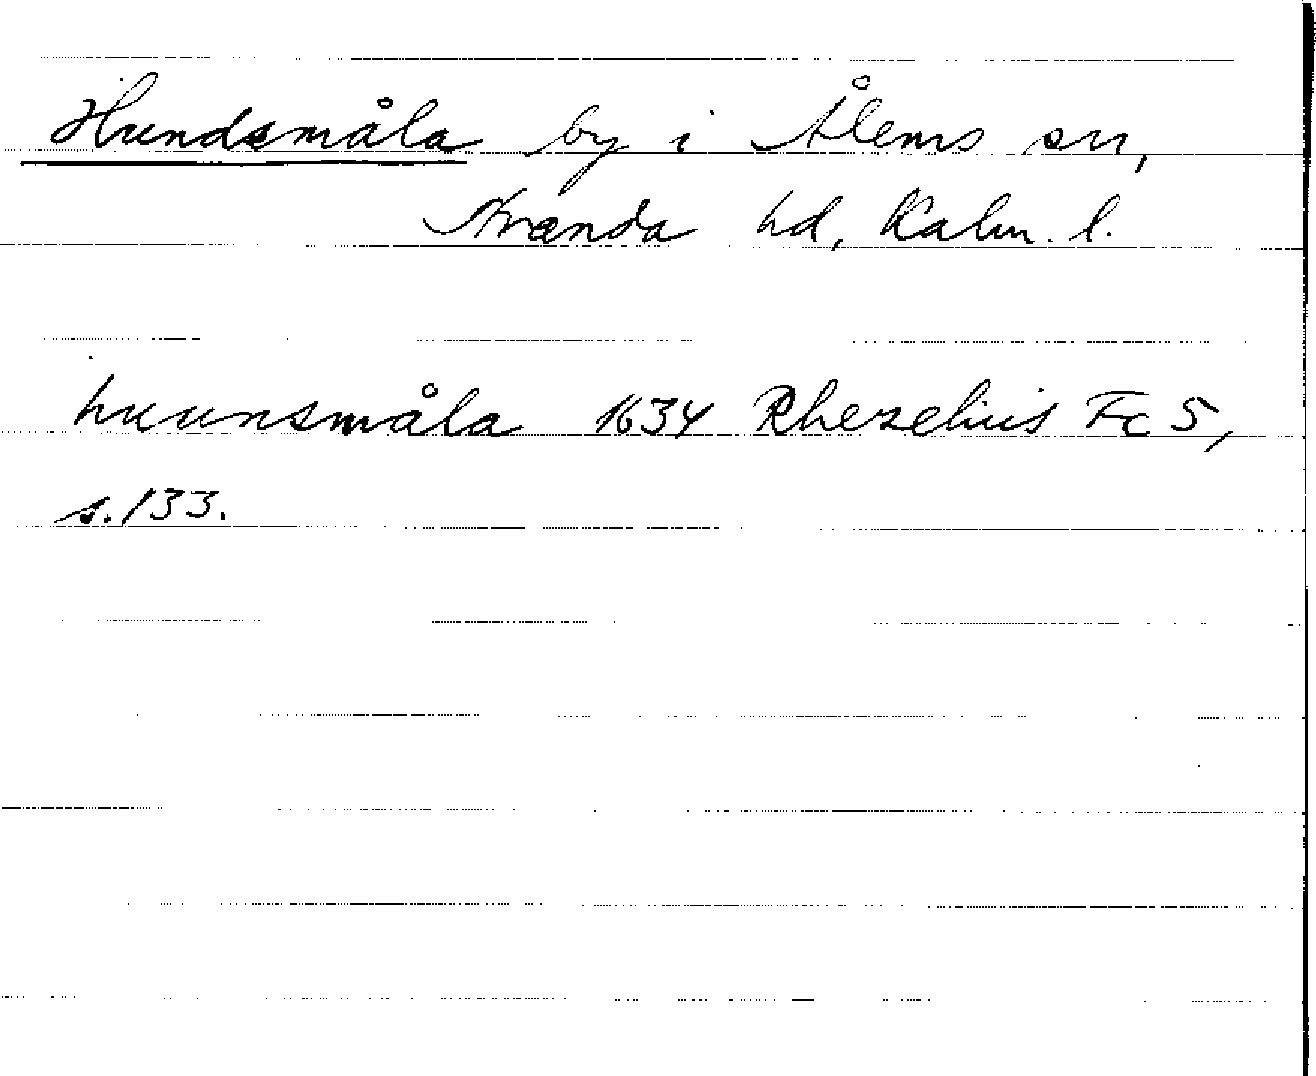 Hundsmåla by i Ålems sn,
Stranda hd, Kalm. l.
huunsmåla 1634 Rhezelius Fc 5,
s. 133.